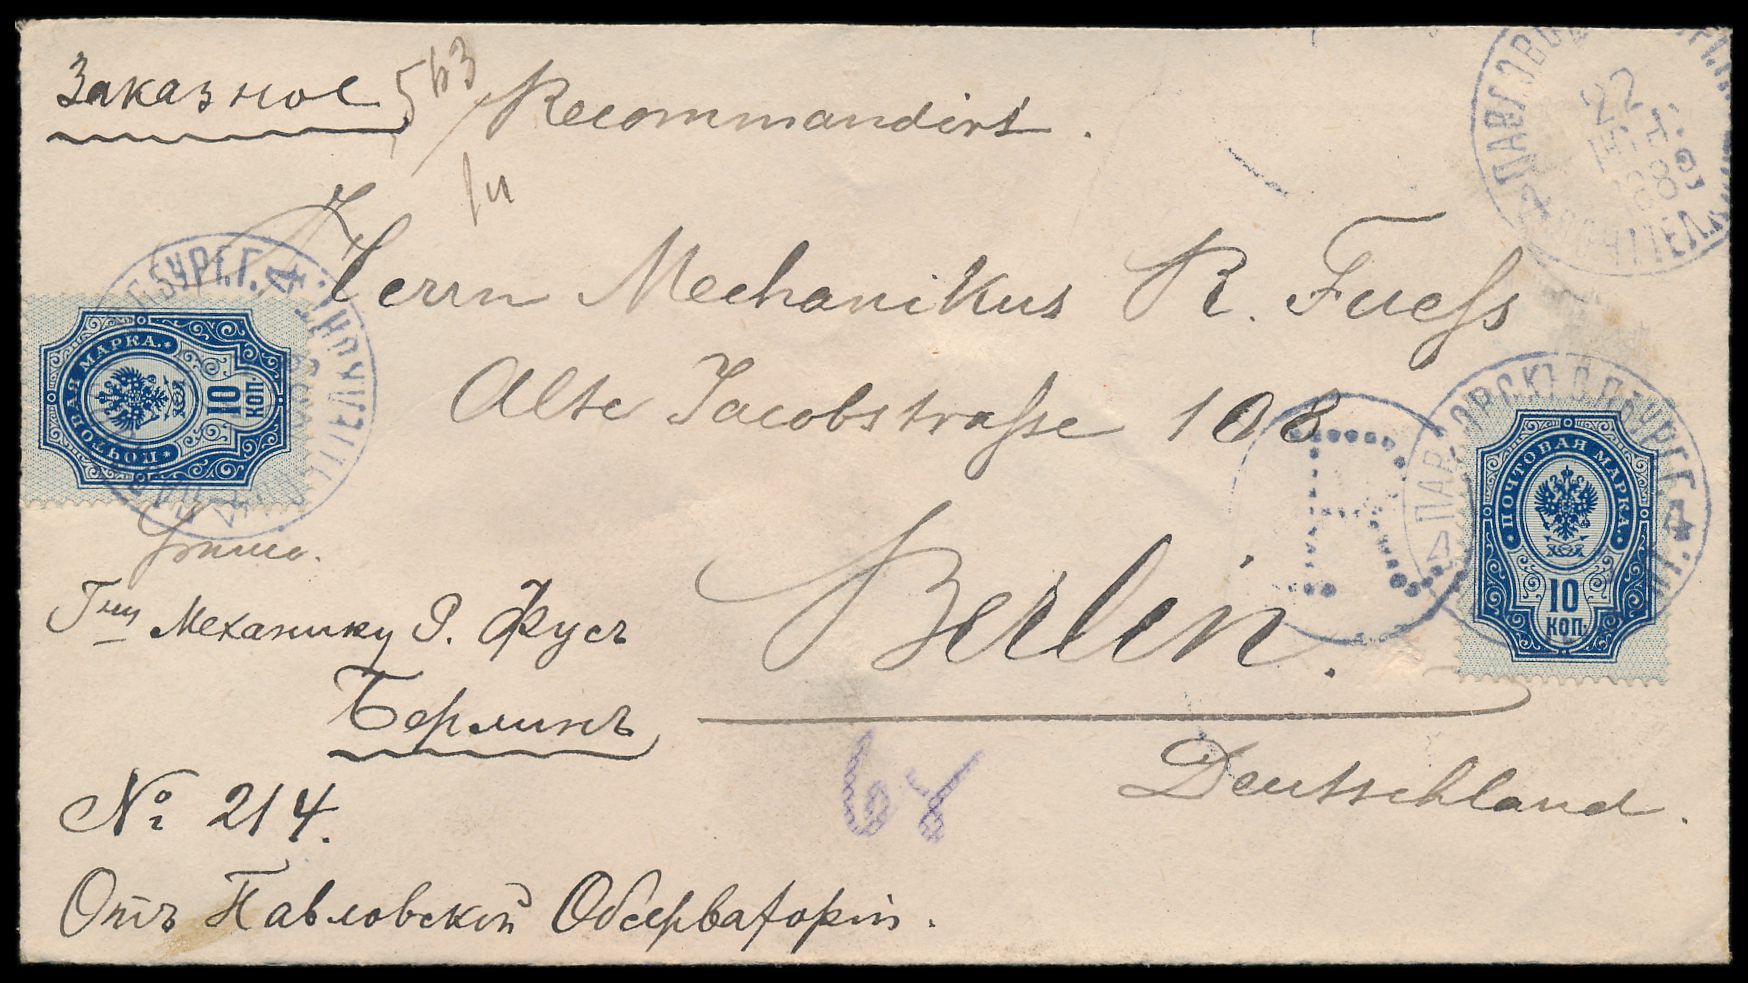 Заказное 563 Recommandirt.
Herrn Mechanikus R. Fuess
Alte Jacobstrasse 108
Berlin.
Deutschland.
Г-ну Механику Р. Фусъ
Берлинъ
№ 214.
Отъ Павловской Обсерваторіи.
ПОЧТОВАЯ МАРКА
10
КОП.
ПОЧТОВАЯ МАРКА
10
КОП.
R
ПАВЛОВСКЪ С.П.БУРГ.Г.
22